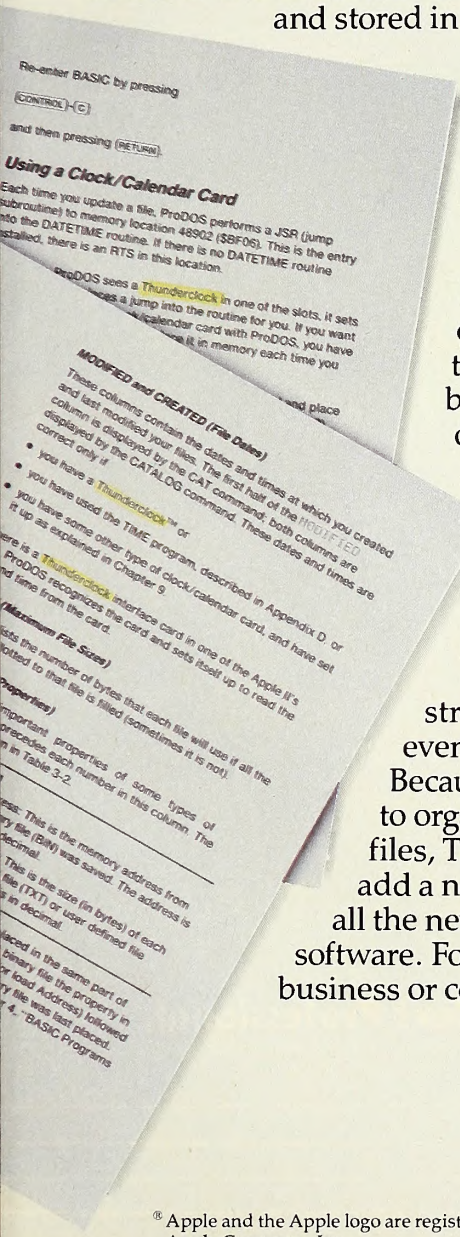 and stored in
Re-enter BASIC by pressing
(CONTROL)-(C)
and then pressing (RETURN).
Using a Clock/Calendar Card
Each time you update a file, ProDOS performs a JSR (jump
subroutine) to memory location 48902 ($BF06). This is the entry
into the DATETIME routine. If there is no DATETIME routine
installed, there is an RTS in this location.
ProDOS sees a Thunderclock in one of the slots, it sets
a jump into the routine for you. If you want
calendar card with ProDOS, you have
it in memory each time you
and place
MODIFIED and CREATED (File Dates)
These columns contain the dates and times at which you created
and last modified your files. The first half of the MODIFIED
column is displayed by the CAT command; both columns are
displayed by the CATALOG command. These dates and times are
correct only if
• you have a Thunderclock™ or
• you have used the TIME program, described in Appendix D, or
• you have some other type of clock/calendar card, and have set
it up as explained in Chapter 9.
ere is a Thunderclock interface card in one of the Apple II's
ProDOS recognizes the card and sets itself up to read the
nd time from the card.
(Maximum File Sizes)
ists the number of bytes that each file will use if all the
lotted to that file is filled (sometimes it is not).
Properties)
mportant properties of some types of
precedes each number in this column. The
m in Table 3-2.
ess: This is the memory address from
ry file (BIN) was saved. The address is
decimal.
This is the size (in bytes) of each
file (TXT) or user defined file
s in decimal.
laced in the same part of
binary file the property in
or load Address) followed
ry file was last placed.
r 4, "BASIC Programs
str
ever
Becau
to org
files, T
add a n
all the ne
software. Fo
business or c
® Apple and the Apple logo are regist